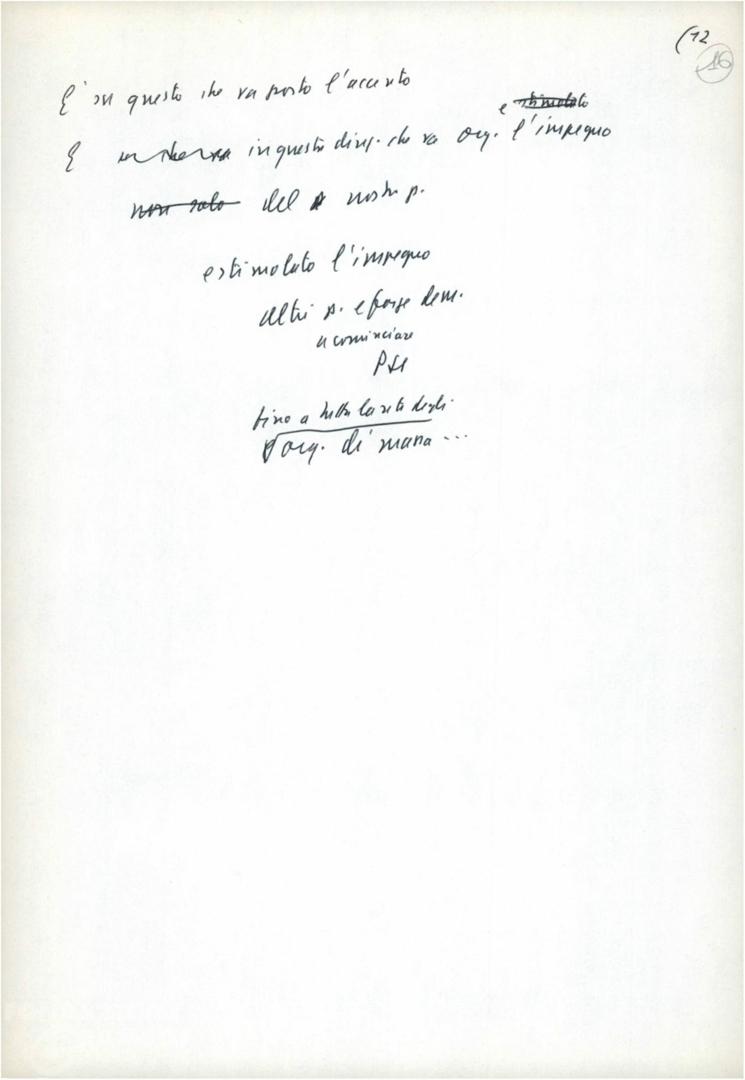 (12
16
E' su questo che va posto l'accento
e stimolato
E in questa direz. che va org. l'impegno
non solo del nostro p.
e stimolato l'impegno
altri p. e forze dem.
a cominciare
PSI
fino a tutta la rete degli
org. di massa ...